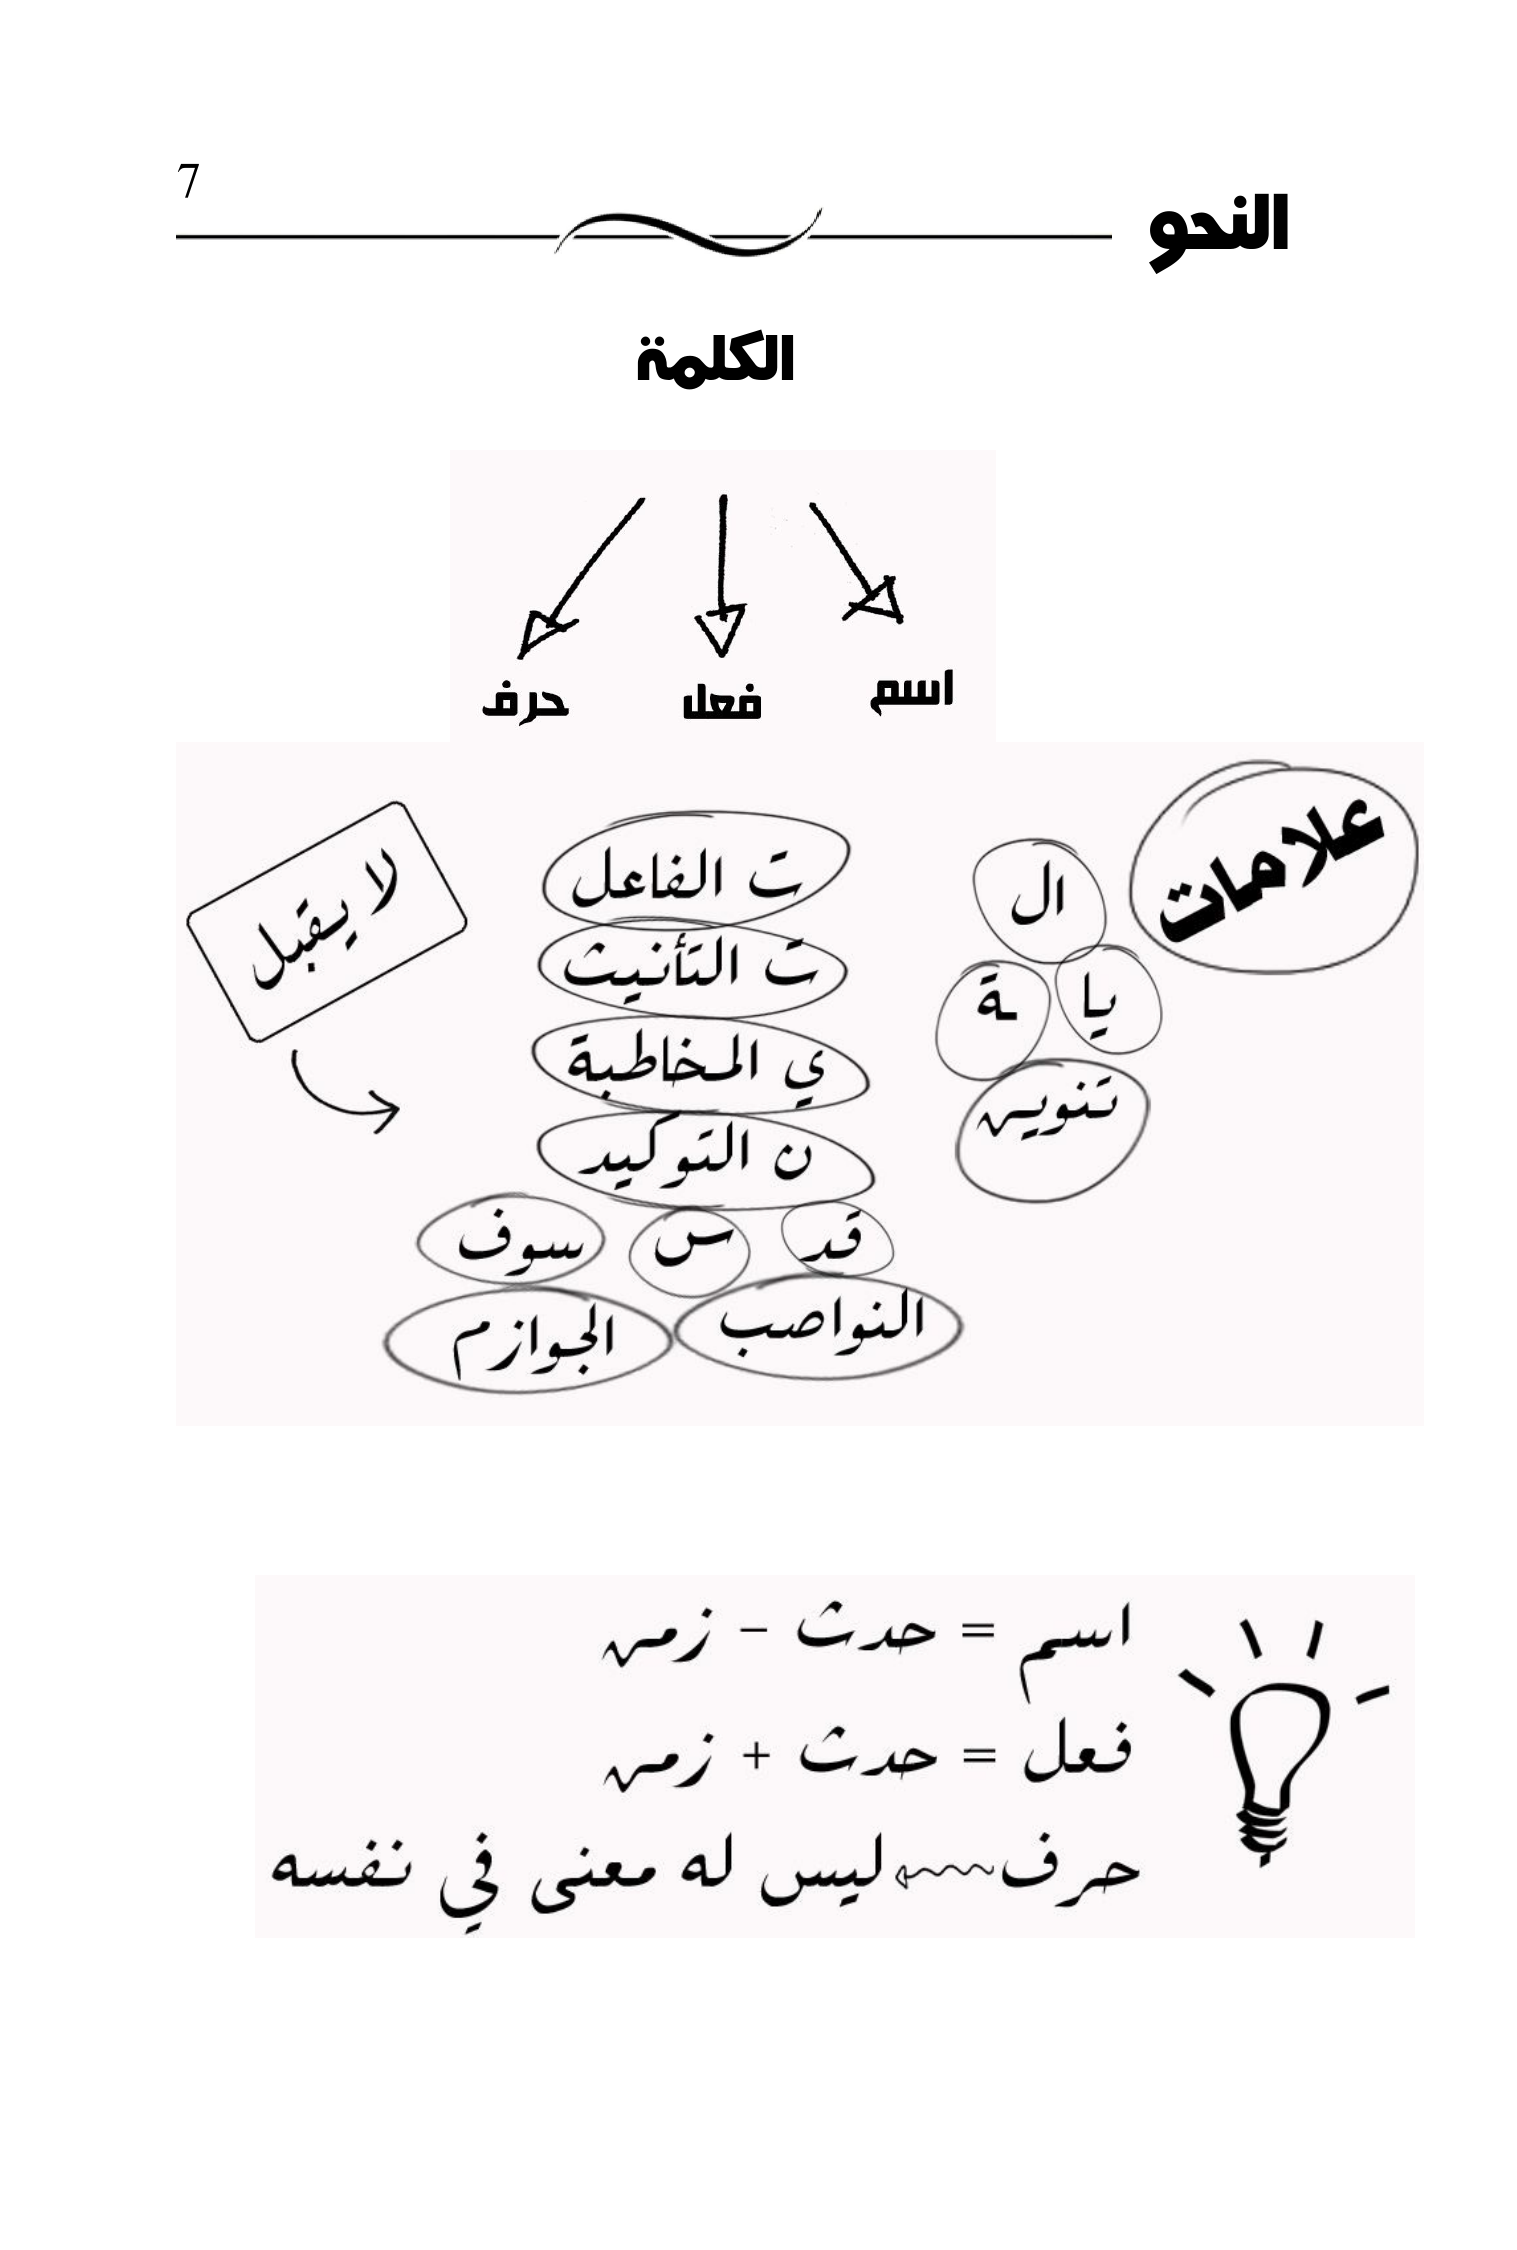 7
النحو
الكلمة
اسم فعل حرف
علامات
ال
يا ـة
تنوين
ت الفاعل
ت التأنيث
ي المخاطبة
ن التوكيد
قد س سوف
النواصب الجوازم
لا يقبل
اسم = حدث - زمن
فعل = حدث + زمن
حرف ليس له معنى في نفسه